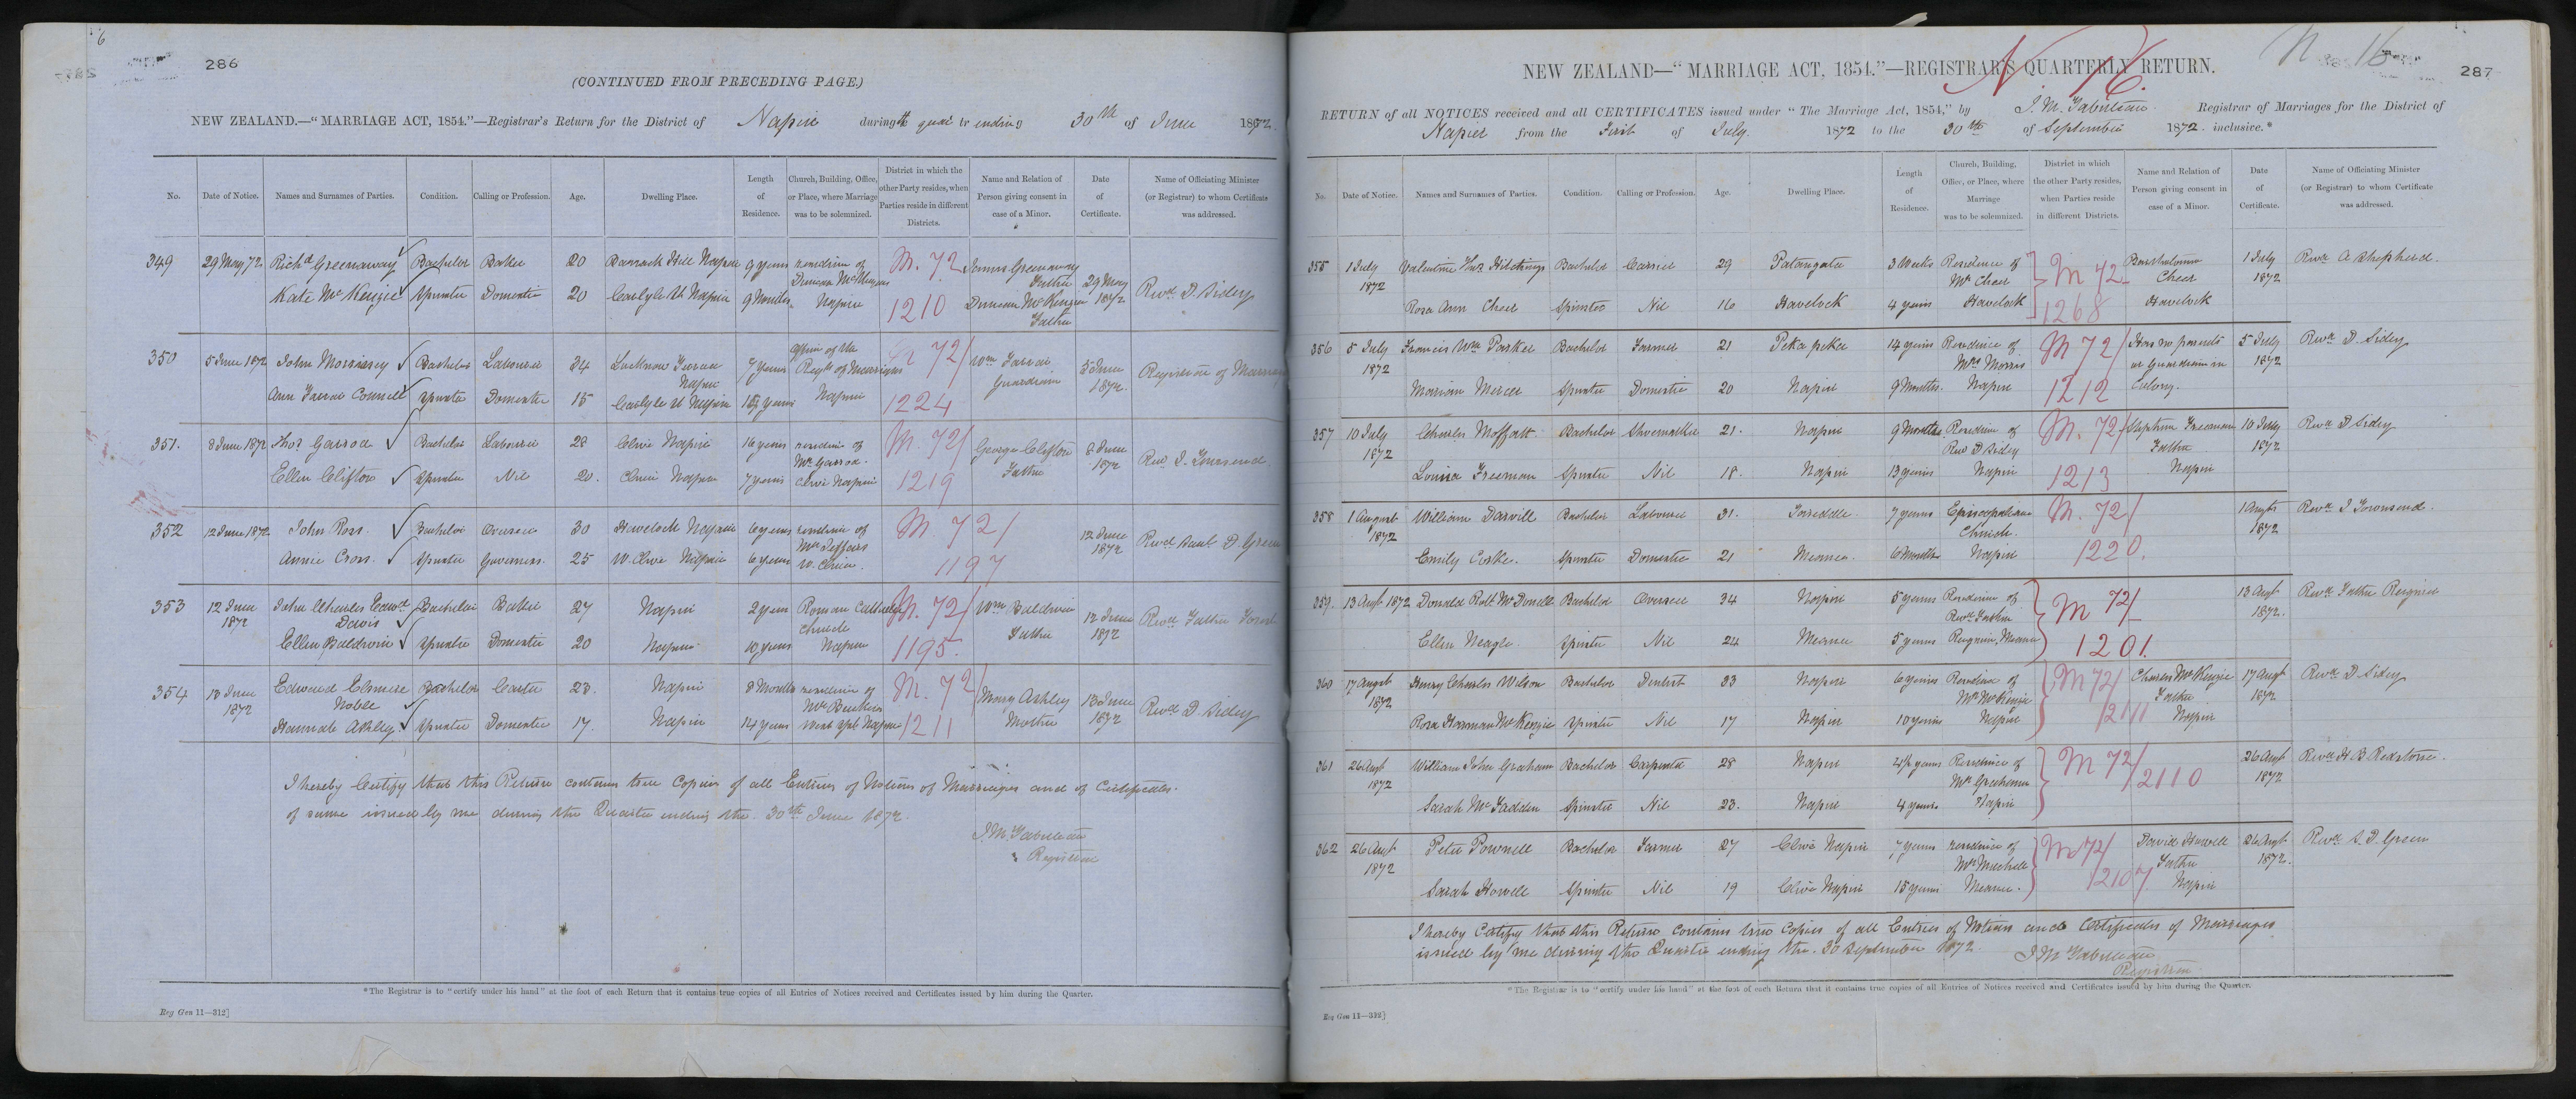 286
(CONTINUED FROM PRECEDING PAGE.)
NEW ZEALAND.—"MARRIAGE ACT, 1854."—Registrar's Return for the District of Napier during the quarter ending 30th of June 1872.
No. Date of Notice. Names and Surnames of Parties. Condition. Calling or Profession. Age. Dwelling Place. Length of Residence. Church, Building, Office, or Place, where Marriage was to be solemnized. District in which the other Party resides, when Parties reside in different Districts. Name and Relation of Person giving consent in case of a Minor. Date of Certificate. Name of Officiating Minister (or Registrar) to whom Certificate was addressed.
349 29 May 72 Richd Greenaway Bachelor Baker 20 Barrack Hill Napier 9 years residence of Duncan McKenzie M. 72 James Greenaway Father 29 May 1872 Revd D. Sidey
Kate McKenzie Spinster Domestic 20 Carlyle St Napier 9 Months Napier 1210 Duncan McKenzie Father
350 5 June 1872 John Morrissey Bachelor Labourer 34 Lucknow Terrace Napier 7 years Office of the Regr of Marriages 72/ Wm Farrar Guardian 5 June 1872 Registrar of Marriages
Ann Farrar Connell Spinster Domestic 15 Carlyle St Napier years Napier 1224
351. 8 June 1872 Thos Garrod Bachelor Labourer 28 Clive Napier 16 years residence of Mr Garrod. M. 72/ George Clifton Father 8 June 1872 Rev J. Townsend
Ellen Clifton Spinster Nil 20. Clive Napier 7 years Clive Napier 1219
352 12 June 1872 John Ross. Bachelor Overseer 30 Havelock Napier 6 years residence of Mr Jeffares M. 72/ 12 June 1872 Revd Saml D. Green
Annie Cross. Spinster Governess. 25 W. Clive Napier 6 years W. Clive. 1197
353 12 June 1872 John Charles Edwd Davis Bachelor Baker 27 Napier 2 years Roman Catholic Church M. 72/ Wm Baldwin Father 12 June 1872 Revd Father Forest
Ellen Baldwin Spinster Domestic 20 Napier 10 years Napier 1195.
354 13 June 1872 Edward Elmere Noble Bachelor Carter 23. Napier 8 Months residence of Mr M. 72/ Mary Ashley Mother 13 June 1872 Revd D. Sidey
Hannah Ashley. Spinster Domestic 17. Napier 14 years West Spit Napier 1211
I hereby Certify that this Return contains true Copies of all Entries of Notices of Marriages and of Certificates.
of same issued by me during the Quarter ending the 30th June 1872.
J. M. Tabuteau
Registrar
*The Registrar is to "certify under his hand" at the foot of each Return that it contains true copies of all Entries of Notices received and Certificates issued by him during the Quarter.
Reg Gen 11—312]
N 16
N. 16.
287
NEW ZEALAND—"MARRIAGE ACT, 1854."—REGISTRAR'S QUARTERLY RETURN.
RETURN of all NOTICES received and all CERTIFICATES issued under "The Marriage Act, 1854," by J. M. Tabuteau. Registrar of Marriages for the District of
Napier from the First of July 1872 to the 30th of September 1872. inclusive.*
No. Date of Notice. Names and Surnames of Parties. Condition. Calling or Profession. Age. Dwelling Place. Length of Residence. Church, Building, Office, or Place, where Marriage was to be solemnized. District in which the other Party resides, when Parties reside in different Districts. Name and Relation of Person giving consent in case of a Minor. Date of Certificate. Name of Officiating Minister (or Registrar) to whom Certificate was addressed.
355 1 July 1872 Valentine Thos Hitchings Bachelor Carrier 29 Patangata 3 Weeks Residence of Mr Cheer M 72 Bartholomew Cheer 1 July 1872 Revd A Shepherd.
Rosa Ann Cheer Spinster Nil 16 Havelock 4 years Havelock 1268 Havelock
356 5 July 1872 Francis Wm Parker Bachelor Farmer 21 Peka peka 14 years Residence of Mrs Morris M 72/ Has no parents or Guardian in Colony. 5 July 1872 Revd D. Sidey
Marian Mercer Spinster Domestic 20 Napier 9 Months. Napier 1212
357 10 July 1872 Charles Moffatt Bachelor Shoemaker 21. Napier 9 Months Residence of Rev D Sidey M. 72/ Stephen Freeman Father 10 July 1872 Revd D Sidey
Louisa Freeman Spinster Nil 18. Napier 13 years Napier 1213 Napier
358 1 August 1872 William Darvill Bachelor Labourer 31. 7 years Episcopalian Church. M. 72/ 1 Augt 1872 Revd J Townsend.
Emily Spinster Domestic 21 Meanee. 6 Months Napier 1220.
359. 13 Augt 1872 Donald Robt McDonell Bachelor Overseer 34 Napier 5 years Residence of Revd Father M 72/ 13 Augt 1872. Revd Father Reignier
Ellen Neagle. Spinster Nil 24 Meanee 5 years Reignier, Meanee 1201.
360 17 Augst 1872 Henry Charles Wilson Bachelor Dentist 33 Napier 6 years Residence of Mr McKenzie M 72/ Charles McKenzie Father 17 Augt 1872 Revd D. Sidey
Rosa McKenzie Spinster Nil 17 Napier 10 years Napier 2111 Napier
361 26 Augt 1872 William John Graham Bachelor Carpenter 28 Napier 4½ years Residence of Mr Graham M 72/ 26 Augt 1872 Revd H B Redstone.
Sarah McFadden Spinster Nil 23. Napier 4 years. Napier 2110
362 26 Augt 1872 Peter Pownell Bachelor Farmer 27 Clive Napier 7 years residence of Mr M 72/ David Howell Father 26 Augt 1872. Revd S. D. Green
Sarah Howell Spinster Nil 19 Clive Napier 15 years Meanee. 2107 Napier
I hereby Certify that this Return contains true Copies of all Entries of Notices and Certificates of Marriages
issued by me during the Quarter ending the 30 September 1872.
J M Tabuteau
Registrar
*The Registrar is to "certify under his hand" at the foot of each Return that it contains true copies of all Entries of Notices received and Certificates issued by him during the Quarter.
Reg Gen 11—312]